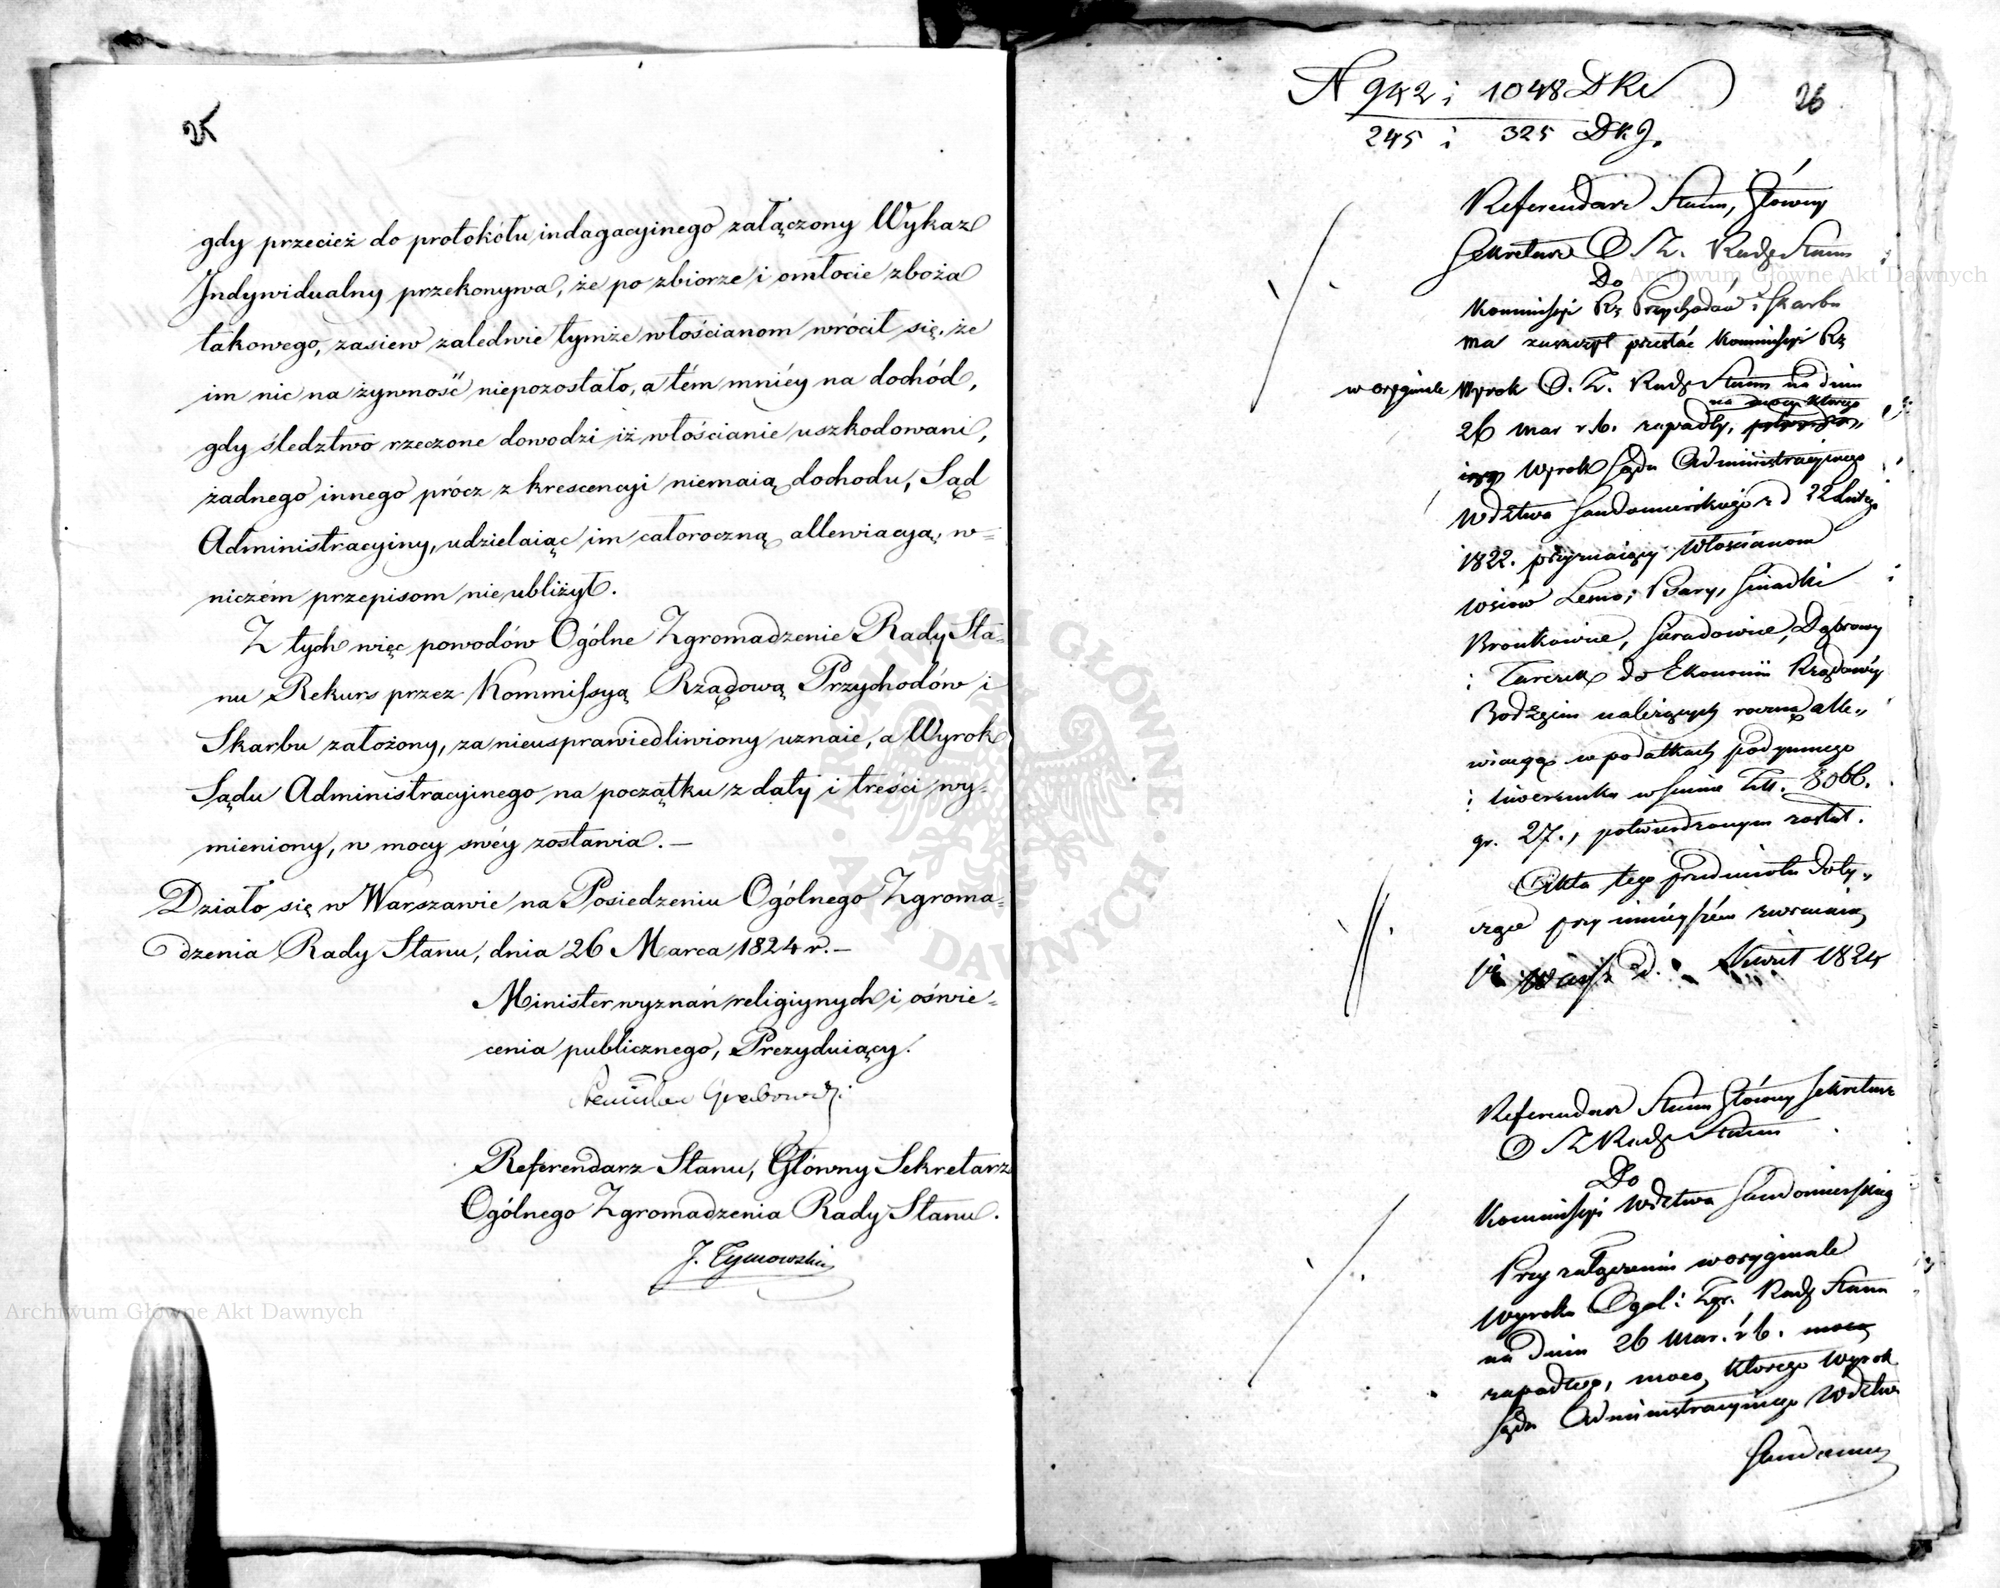 25
gdy przecież do protokółu indagacyjnego załączony Wykaz
Indywidualny przekonywa, że po zbiorze i omłocie zboża
takowego, zasiew zaledwie tymże włościanom wrócił się, że
im nic na żywność niepozostało, a tém mniéy na dochód,
gdy śledztwo rzeczone dowodzi iż włościanie uszkodowani,
żadnego innego prócz z krescencyi niemaią dochodu, Sąd
Administracyiny, udzielaiąc im całoroczną allewiacyą, w=
niczém przepisom nieubliżył.
Z tych więc powodów Ogólne Zgromadzenie Rady Sta=
nu Rekurs przez Kommissyą Rządową Przychodów i
Skarbu założony, za nieusprawiedliwiony uznaie, a Wyrok
Sądu Administracyjnego na początku z daty i treści wy=
mieniony, w mocy swéy zostawia. —
Działo się w Warszawie na Posiedzeniu Ogólnego Zgroma=
dzenia Rady Stanu, dnia 26 Marca 1824 r. —
Minister wyznań religiynych i oświe=
cenia publicznego, Prezyduiący.
Stanisław Grabowski
Referendarz Stanu, Główny Sekretarz
Ogólnego Zgromadzenia Rady Stanu.
J. Tymowski
N 942 i 1048 DKe
26
245 i 325 DKJ.
Referendarz Stanu, Główny
Sekretarz O Z. Rady Stanu
Do
Kommissyi Rz Przychodów i Skarbu
ma zaszczyt przesłać Kommissyi Rz
w oryginale Wyrok O. Z. Rady Stanu na dniu
na mocy którego
26 Mar r.b. zapadły,
Wyrok Sądu Administracyjnego
Wdztwa Sandomierskiego z d 22 Lutego
1822. przyznaiący Włościanom
wsiów Lemo; Bary,
Bronkowice, Sieradowice, Dąbrowy
i Tarczek do Ekonomii Rządowéy
Bodzęcin należących roczną alle„
wiacyą w podatkach podymnego
i liwerunku w summie Złł.
gr. 27., potwierdzonym został.
Akta tego przedmiotu doty„
czące przy ninieyszém zwracaią
się d. Kwiet 1824
Referendarz Stanu Główny Sekretarz
O Z Rady Stanu
Do
Kommissyi Wdztwa Sandomierskieg
Przy załączeniu w oryginale
Wyroku Ogol: Zgr. Rady Stanu
na dniu 26 Mar. r b. mocą
zapadłego, mocą którego Wyrok
Sądu Administracyjnego Wdztwa
Sandomier
Archiwum Główne Akt Dawnych
Archiwum Główne Akt Dawnych
ARCHIWUM GŁÓWNE · AKT DAWNYCH ·